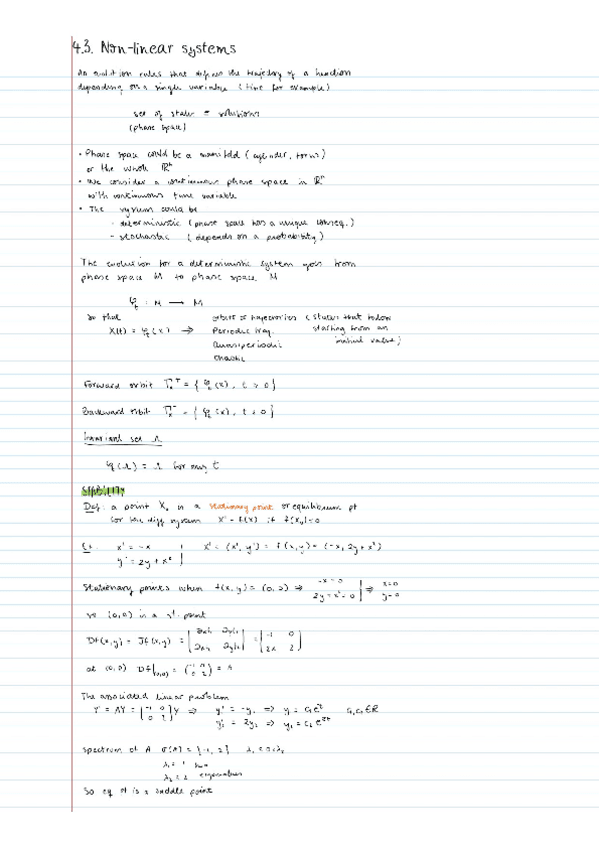 4.3. Non-linear systems
An evolution rules that defines the trajectory of a function
depending on a single variable (time for example)
set of states = solutions
(phase space)
• Phase space could be a manifold (cylinder, torus)
or the whole ℝⁿ
• We consider a continuous phase space in ℝⁿ
with continuous time variable
• The system could be
- deterministic (phase scale has a unique conseq.)
- stochastic (depends on a probability)
The evolution for a deterministic system goes from
phase space M to phase space M
φₜ : M → M
so that orbits or trajectories (states that follow
X(t) = φₜ(x) ⇒ Periodic traj. starting from an
Quasiperiodic initial value)
Chaotic
Forward orbit Γₓ⁺ = { φₜ(x), t > 0 }
Backward orbit Γₓ⁻ = { φₜ(x), t < 0 }
Invariant set Λ
φₜ(Λ) = Λ for any t
STABILITY
Def: a point X₀ is a stationary point or equilibrium pt
for the diff system X' = f(X) if f(X₀)=0
Ex: x' = -x X' = (x', y') = f(x,y) = (-x, 2y + x²)
y' = 2y + x²
Stationary points when f(x,y) = (0,0) ⇒ -x = 0 ⇒ x=0
2y + x² = 0 y=0
so (0,0) is a st. point
Df(x,y) = Jf(x,y) = = -1 0
2x 2
at (0,0) Df|(0,0) = (-1 0 0 2) = A
The associated linear problem
Y' = AY = (-1 0 0 2) Y ⇒ y₁' = -y₁ ⇒ y₁ = c₁e⁻ᵗ c₁, c₂ ∈ ℝ
y₂' = 2y₂ ⇒ y₂ = c₂e²ᵗ
spectrum of A σ(A) = {-1, 2} λ₁ < 0 < λ₂
λ₁ = -1 two
λ₂ = 2 eigenvalues
So eq pt is a saddle point